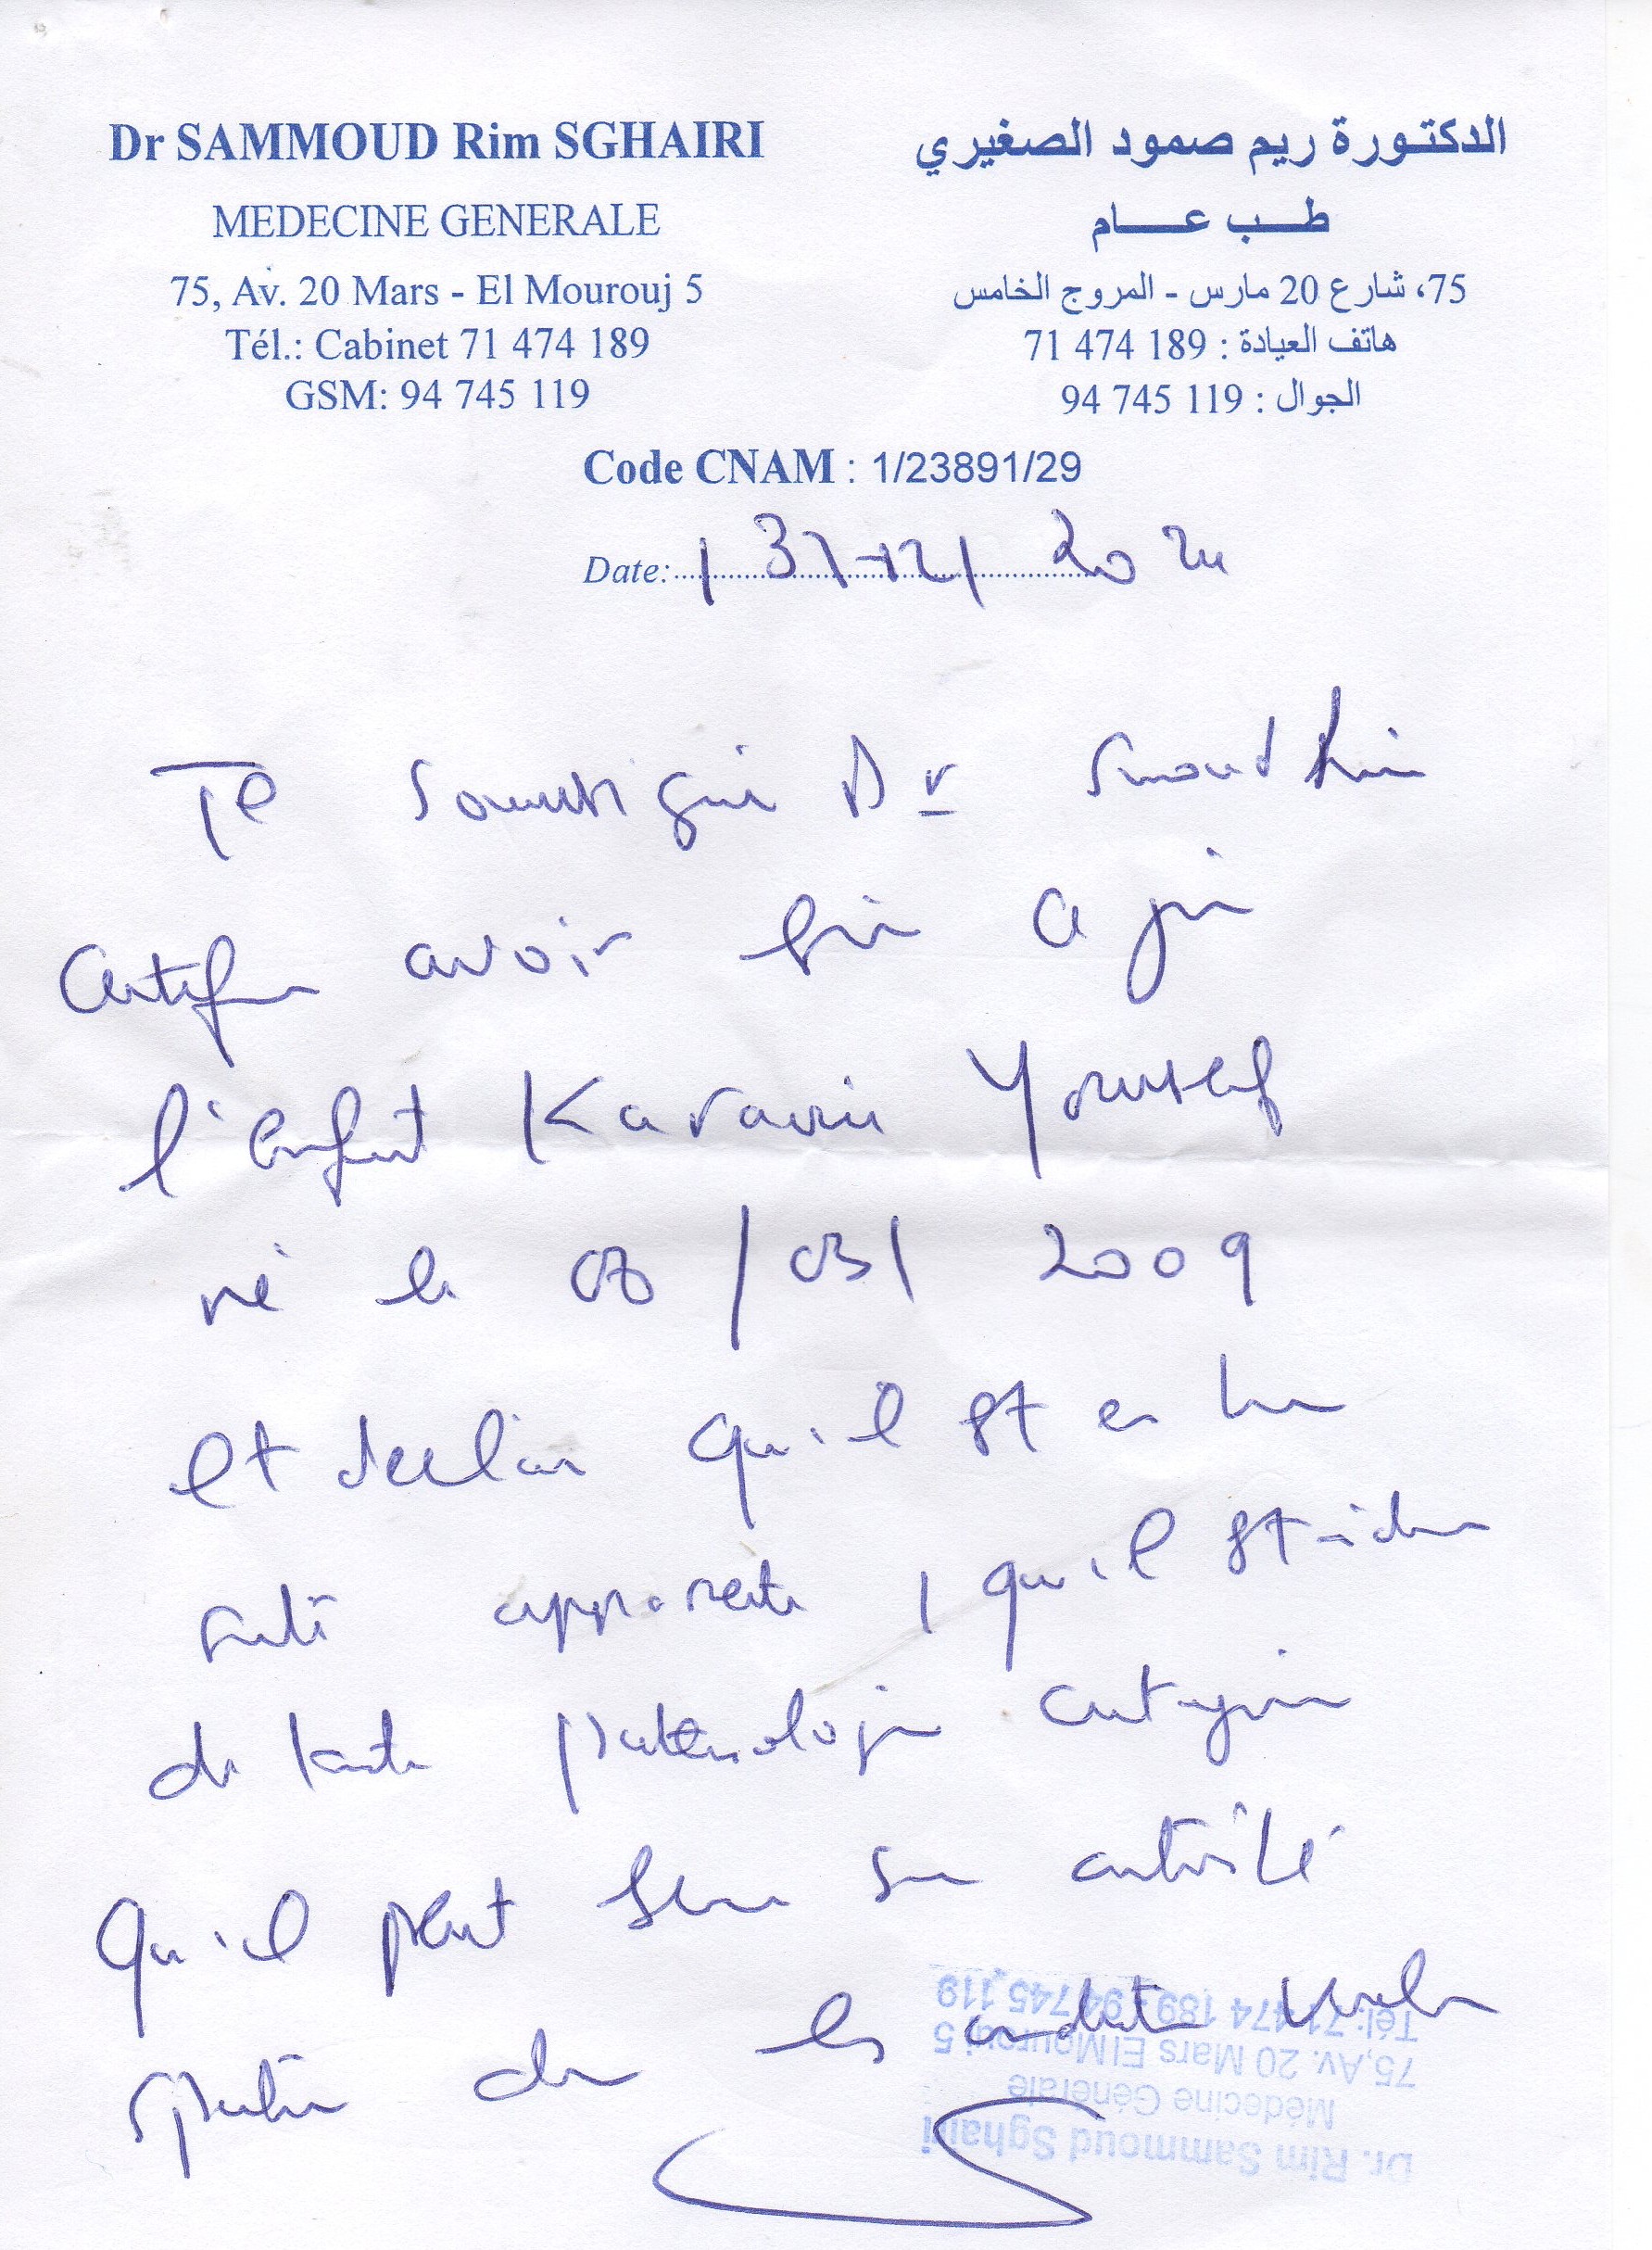 Dr SAMMOUD Rim SGHAIRI
MEDECINE GENERALE
75, Av. 20 Mars - El Mourouj 5
Tél.: Cabinet 71 474 189
GSM: 94 745 119
الدكتورة ريم صمود الصغيري
طب عام
75، شارع 20 مارس - المروج الخامس
هاتف العيادة : 189 474 71
الجوال : 119 745 94
Code CNAM : 1/23891/29
Date:
Je soussigné Dr Rim
Certifie avoir ce jour
l'enfant Youssef
né le /03/ 2009
et déclare qu'il est en bonne
santé apparente, qu'il est
de toute pathologie contagieuse
qu'il peut faire son activité
sportive dans les conditions
Dr. Rim Sammoud Sghairi
Médecine Générale
75,Av. 20 Mars El Mourouj 5
Tél: 71 474 189 94 745 119